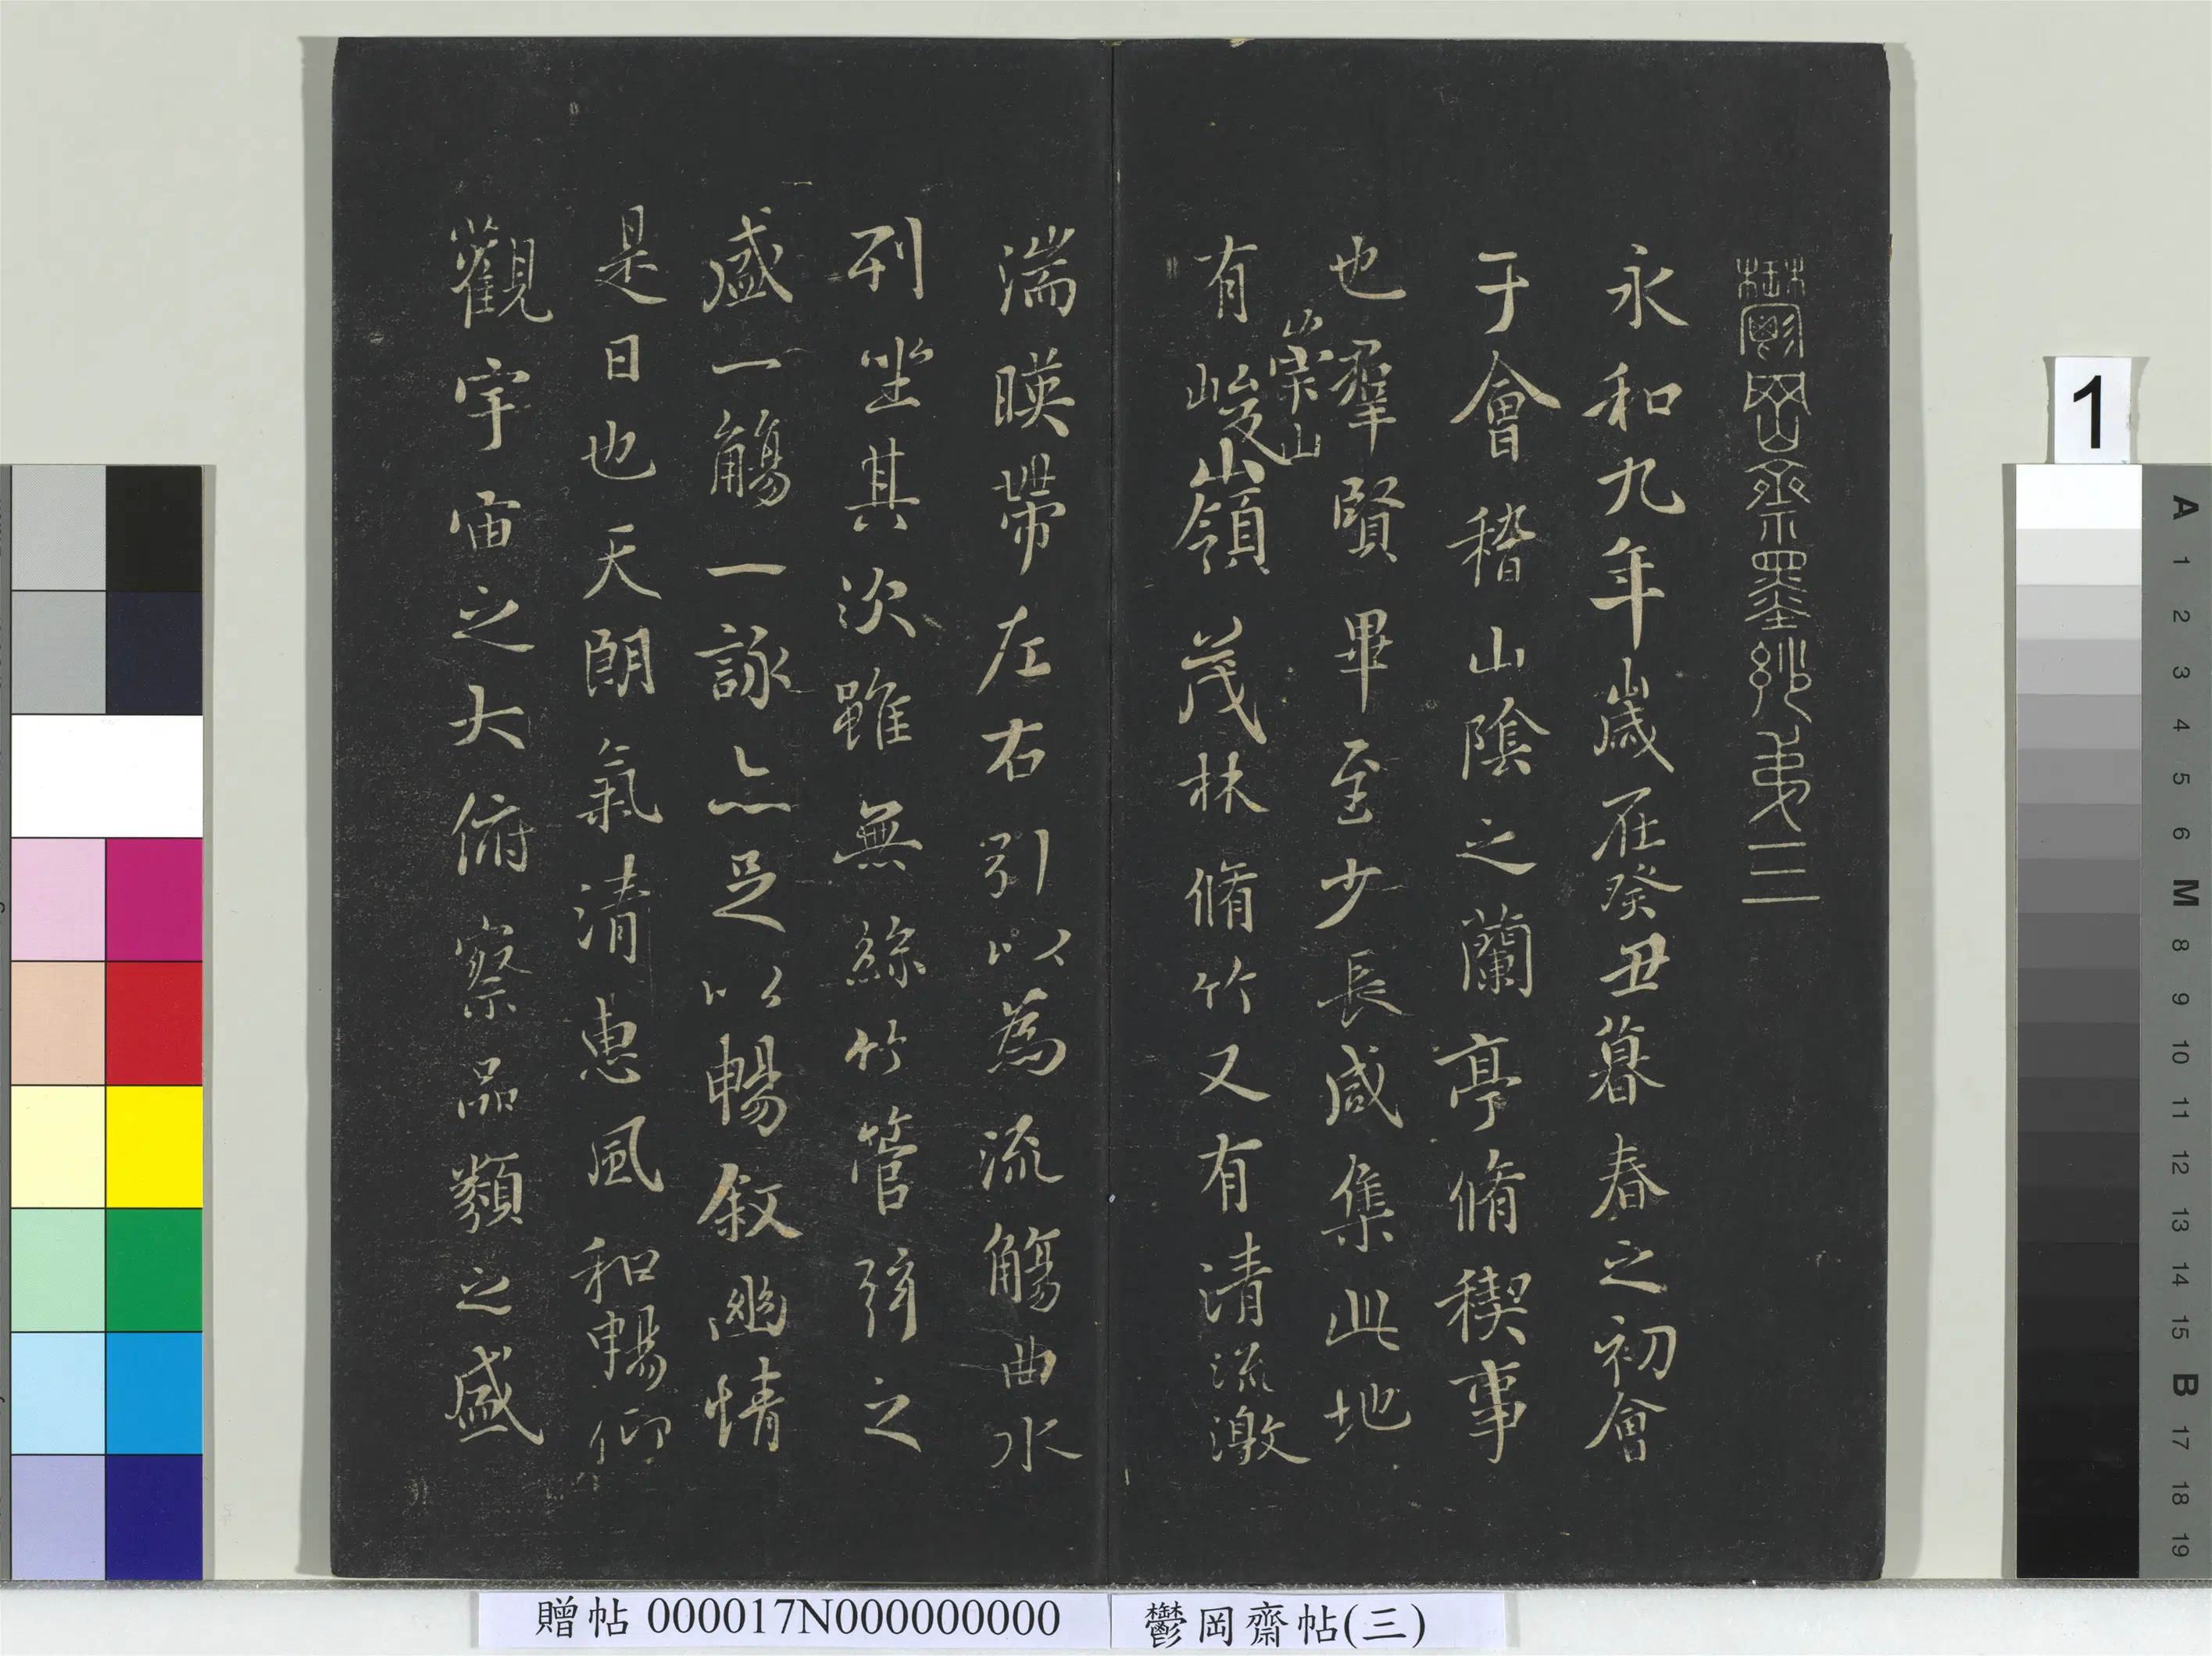 鬱岡齋墨妙第三
永和九年歲在癸丑暮春之初會
于會稽山陰之蘭亭脩稧事
也羣賢畢至少長咸集此地
崇山
有峻嶺茂林脩竹又有清流激
湍暎帶左右引以為流觴曲水
列坐其次雖無絲竹管弦之
盛一觴一詠亦足以暢敘幽情
是日也天朗氣清惠風和暢仰
觀宇宙之大俯察品類之盛
贈帖 000017N000000000
鬱岡齋帖(三)
1
A 1 2 3 4 5 6 M 8 9 10 11 12 13 14 15 B 17 18 19